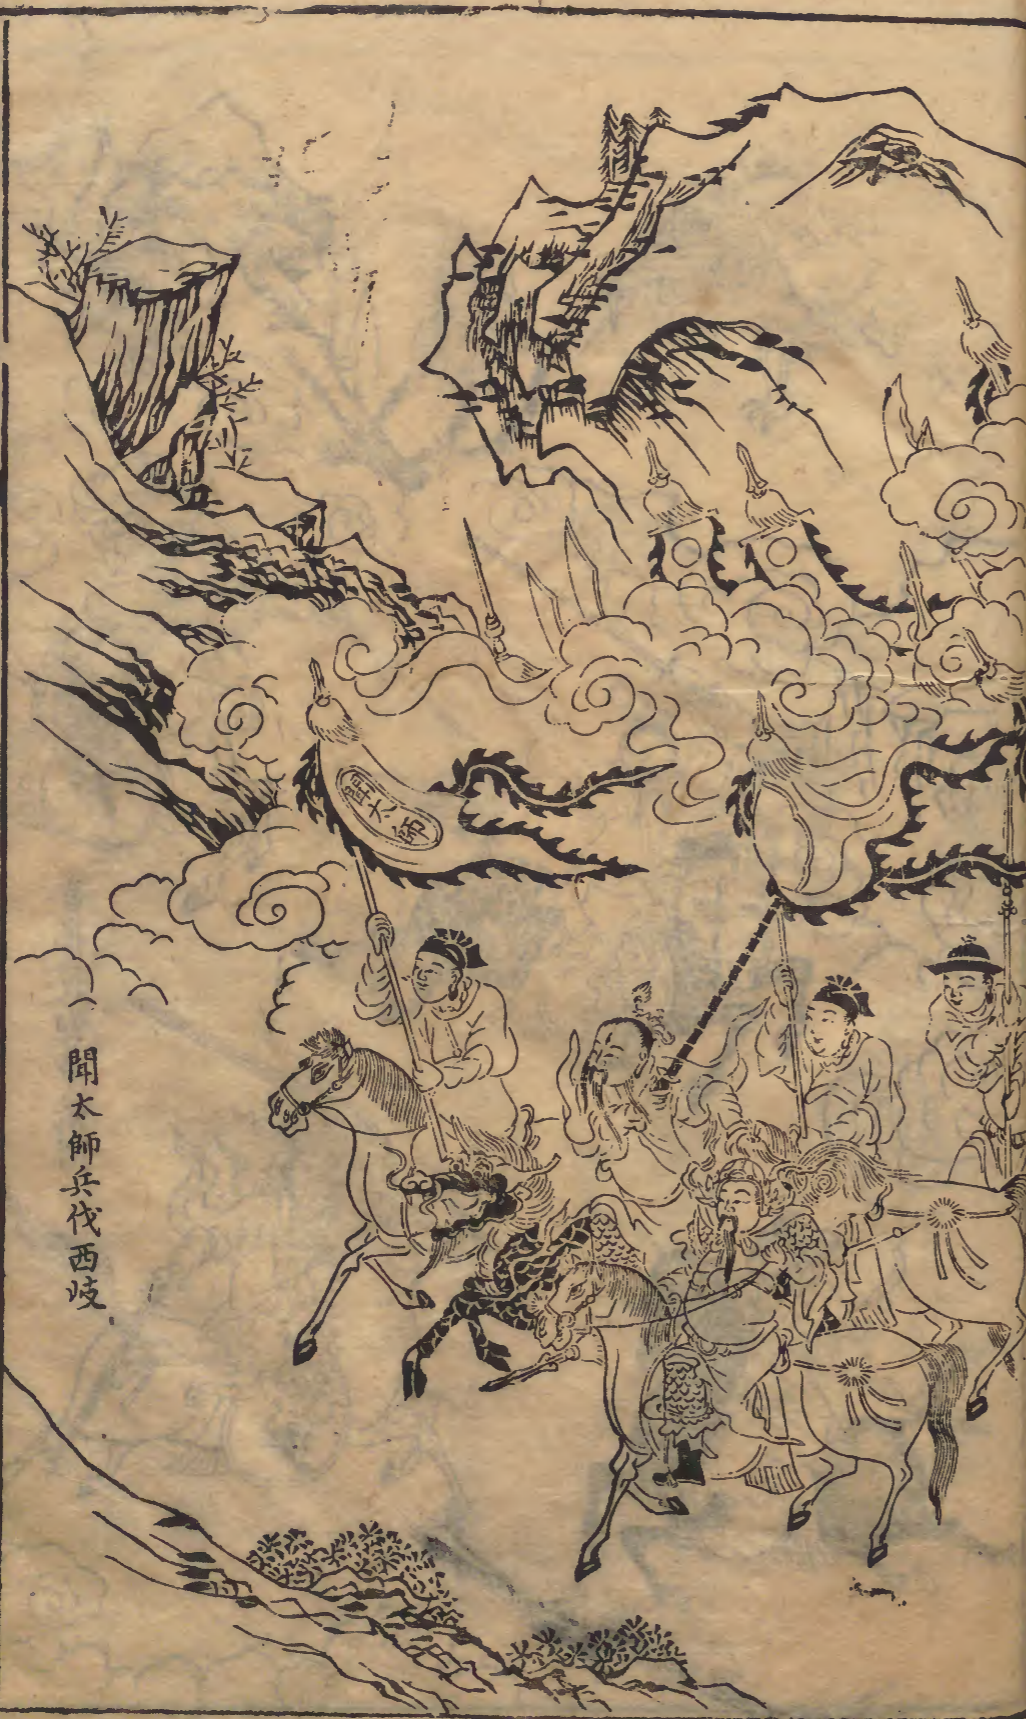 聞太師
聞太師兵伐西岐